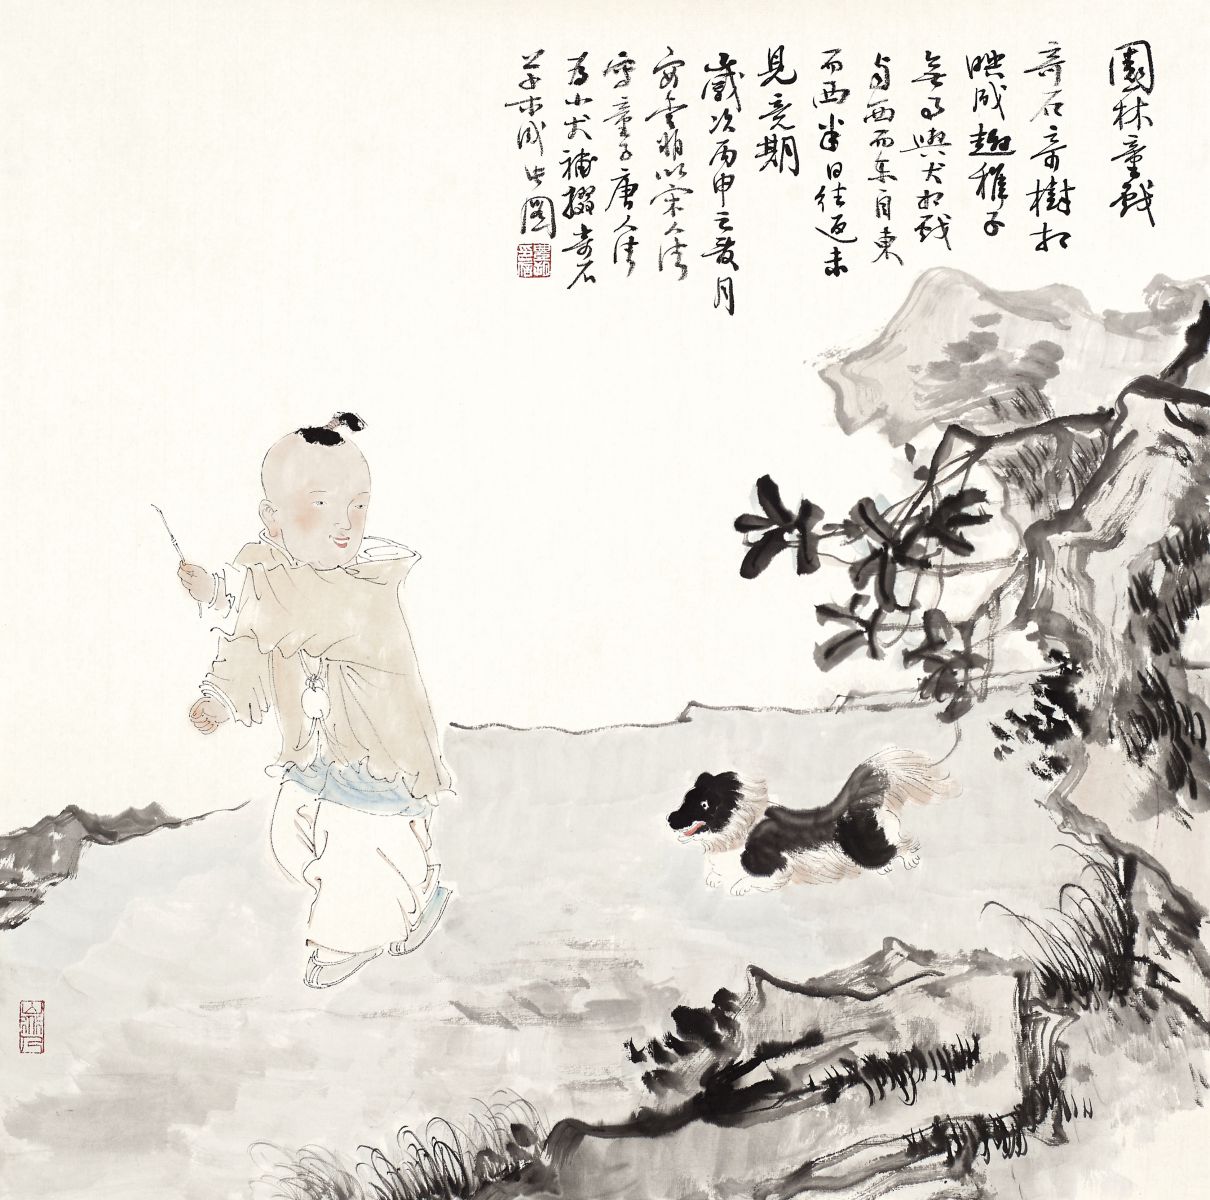 園林童戲
奇石奇樹相
映成趣稚子
無事與犬相戲
自西而東自東
而西半日往返未
見竟期
歲次丙申之菊月
安雲頫以宋人法
寫童子唐人法
為小犬補綴奇石
草木成此圖